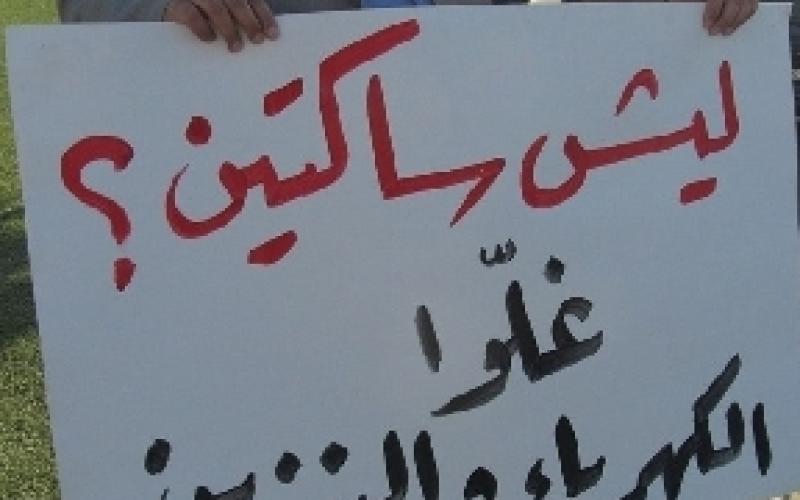 ليش ساكتين؟
غلّوا
الكهرباء والبنزين